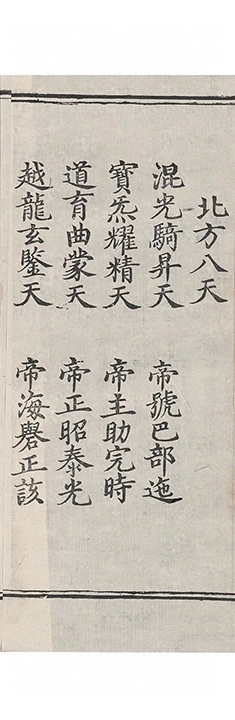 北方八天
混光騎昇天 帝號巴部迤
寶炁耀精天 帝主助完時
道育曲蒙天 帝正昭泰光
越龍玄鑒天 帝海礐正該